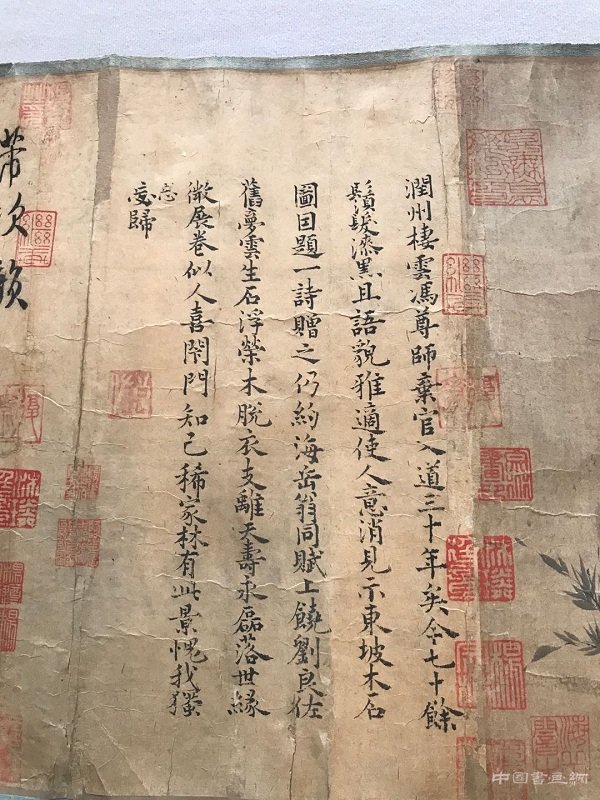 潤州棲雲馮尊師棄官入道三十年矣今七十餘
鬚髮漆黑且語貌雅適使人意消見示東坡木石
圖因題一詩贈之仍約海岳翁同賦上饒劉良佐
舊夢雲生石浮榮木脫衣支離天壽永磊落世緣
微展卷似人喜閉門知己稀家林有此景愧我獨
忘歸
忘
芾次韻
中国書画網